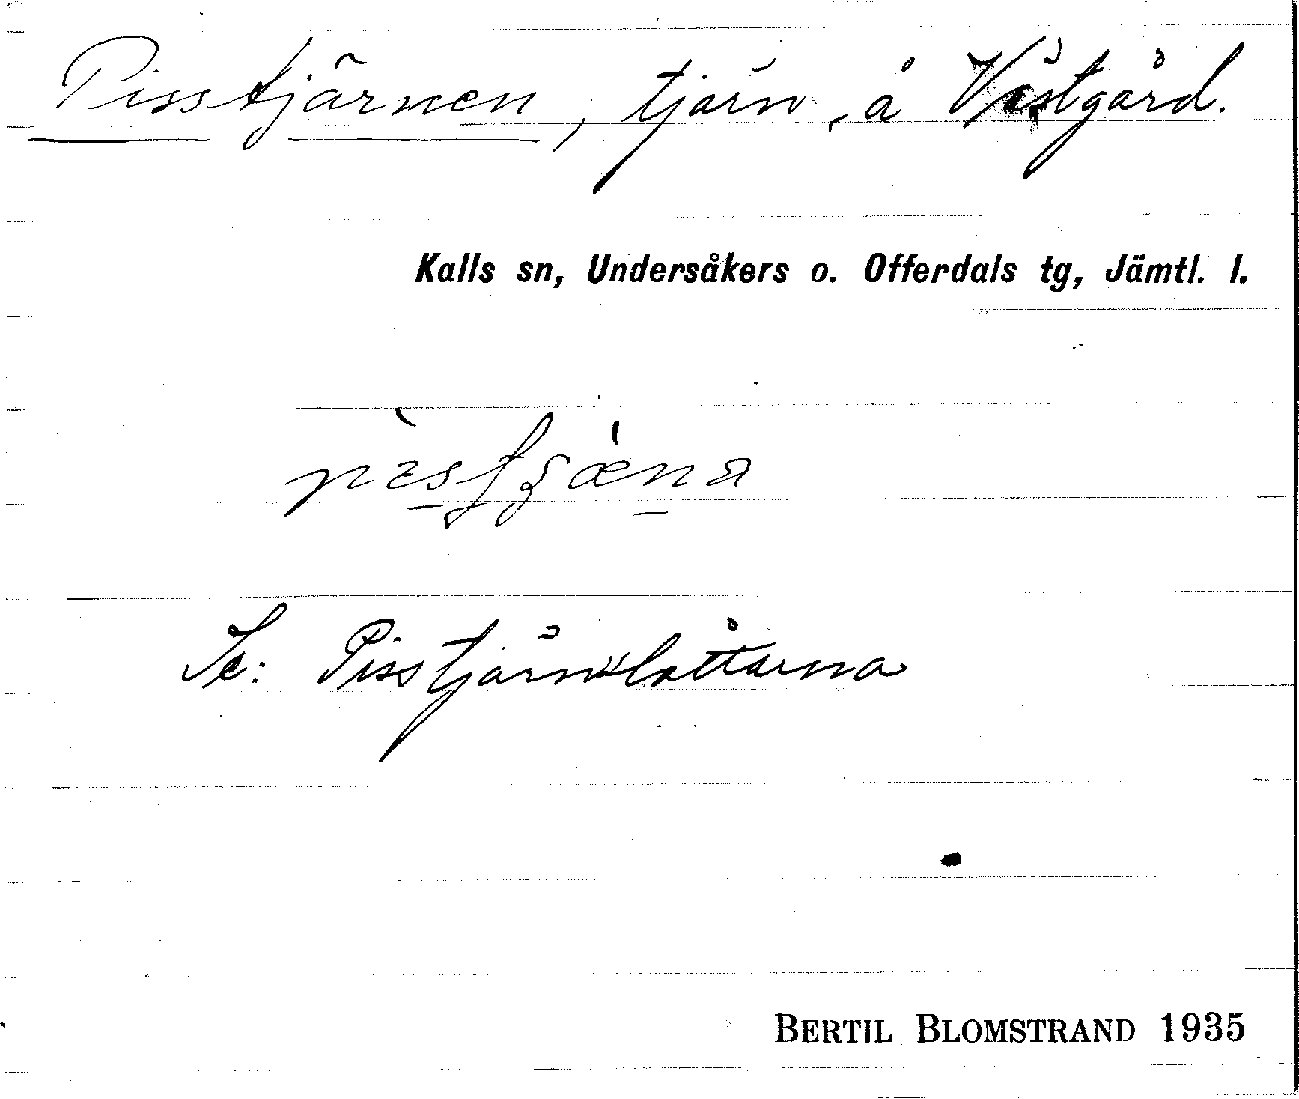 Pisstjärnen, tjärn å Västgård.
Kalls sn, Undersåkers o. Offerdals tg, Jämtl. l.
Se: Pisstjärnslåttarna
BERTIL BLOMSTRAND 1935